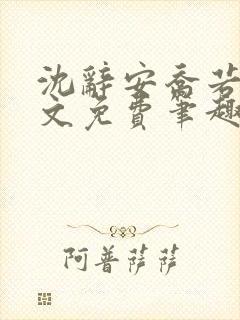 沈辞安乔若
文免费笔趣
阿普萨萨